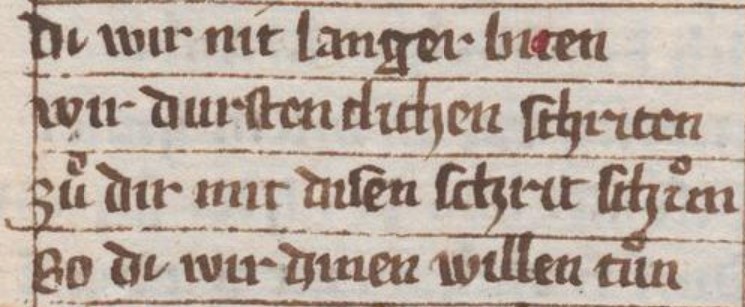 di wir nit langer biten
wir durstenclichen schriten
zů dir mit disen schrit schůn
So di wir dinen willen tůn